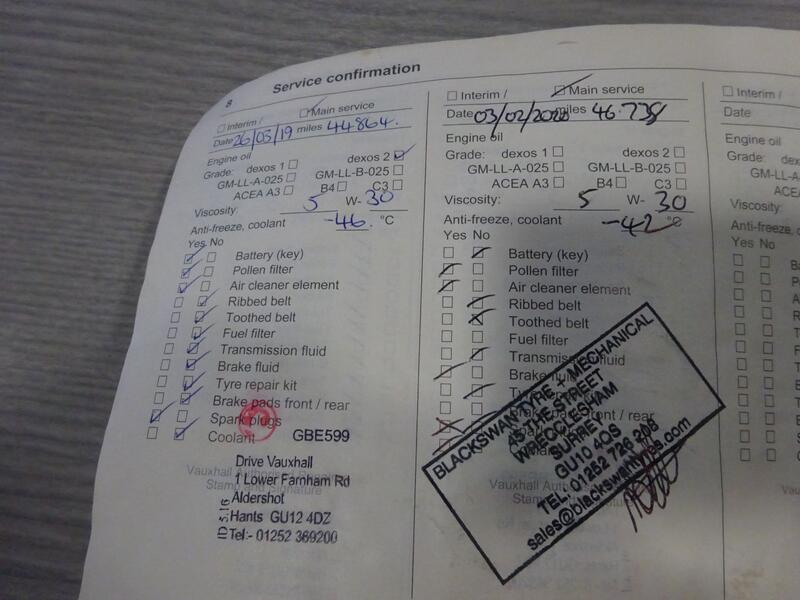 8
Service confirmation
Interim /
Main service
Date 26/03/19 miles 44864.
Engine oil
Grade: dexos 1
dexos 2
GM-LL-A-025
GM-LL-B-025
ACEA A3
B4
C3
Viscosity: 5 W- 30
Anti-freeze, coolant -46. °C
Yes No
Battery (key)
Pollen filter
Air cleaner element
Ribbed belt
Toothed belt
Fuel filter
Transmission fluid
Brake fluid
Tyre repair kit
Brake pads front / rear
Spark plugs
Coolant
GBE599
Vauxhall Authorised
Stamp and Signature
Drive Vauxhall
1 Lower Farnham Rd
Aldershot
Hants GU12 4DZ
Tel:- 01252 369200
Interim /
Main service
Date 03/02/2020 miles 46.738
Engine oil
Grade: dexos 1
dexos 2
GM-LL-A-025
GM-LL-B-025
ACEA A3
B4
C3
Viscosity: 5 W- 30
Anti-freeze, coolant -42 °C
Yes No
Battery (key)
Pollen filter
Air cleaner element
Ribbed belt
Toothed belt
Fuel filter
Transmission fluid
Brake fluid
front / rear
Vauxhall
Stamp and
BLACKSWAN TYRE + MECHANICAL
45 THE STREET
WRECCLESHAM
SURREY
GU10 4QS
TEL: 01252 726 208
sales@blackswantyres.com
Interim /
Date
Engine oil
Grade:
GM-LL-A
ACE
Viscosity:
Anti-freeze, coola
Yes No